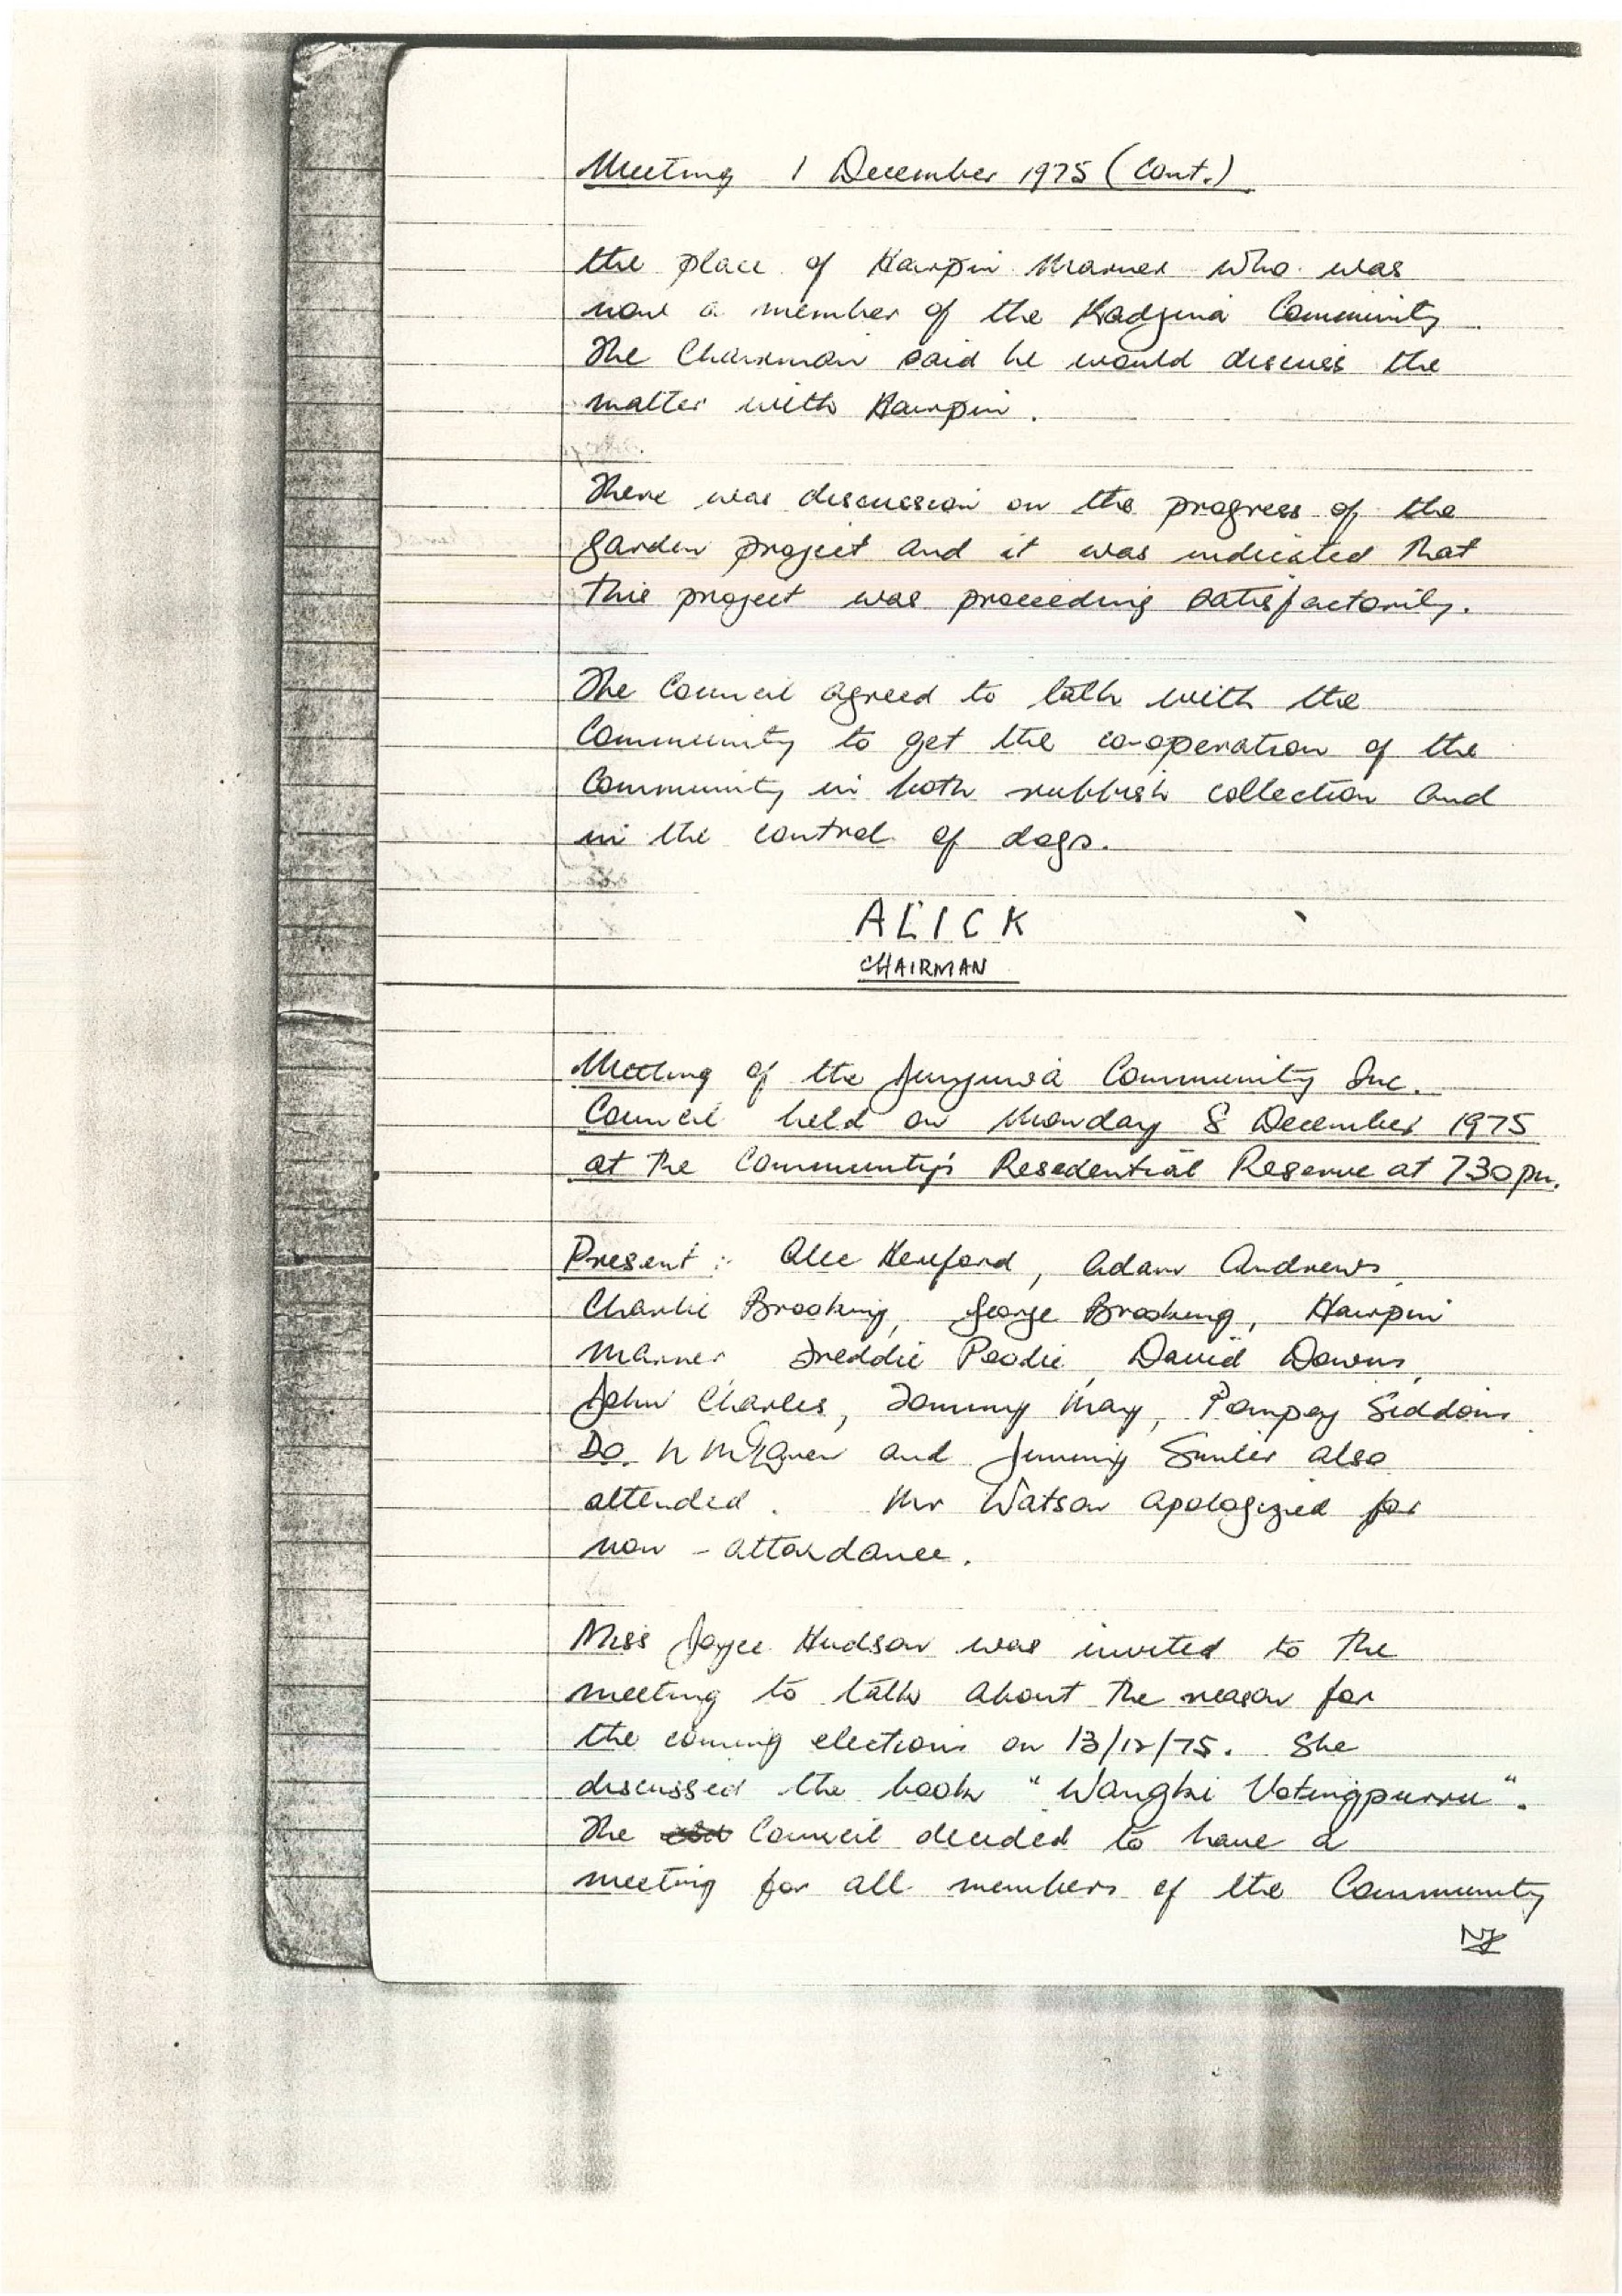 Meeting 1 December 1975 (Cont.)
the place of Hairpin Marner who was
now a member of the Kadjina Community
The Chairman said he would discuss the
matter with Hairpin.
There was discussion on the progress of the
garden project and it was indicated that
this project was proceeding satisfactorily.
The Council agreed to talk with the
Community to get the co-operation of the
Community in both rubbish collection and
in the control of dogs.
ALICK
CHAIRMAN
Meeting of the Junjuwa Community Inc.
Council held on Monday 8 December 1975
at the Community's Resedential Reserve at 730 pm.
Present :- Alec Hereford, Adam Andrews,
Charlie Brooking, George Brooking, Hairpin
Marner Freddie Poodie, David Downs,
John Charles, Tommy May, Pompey Siddons.
and Jimmy Smiler also
attended. Mr Watson apologized for
non-attendance.
Miss Joyce Hudson was invited to the
meeting to talk about the reason for
the coming elections on 13/12/75. She
discussed the book "Wangki Votingpurru".
The Council decided to have a
meeting for all members of the Community